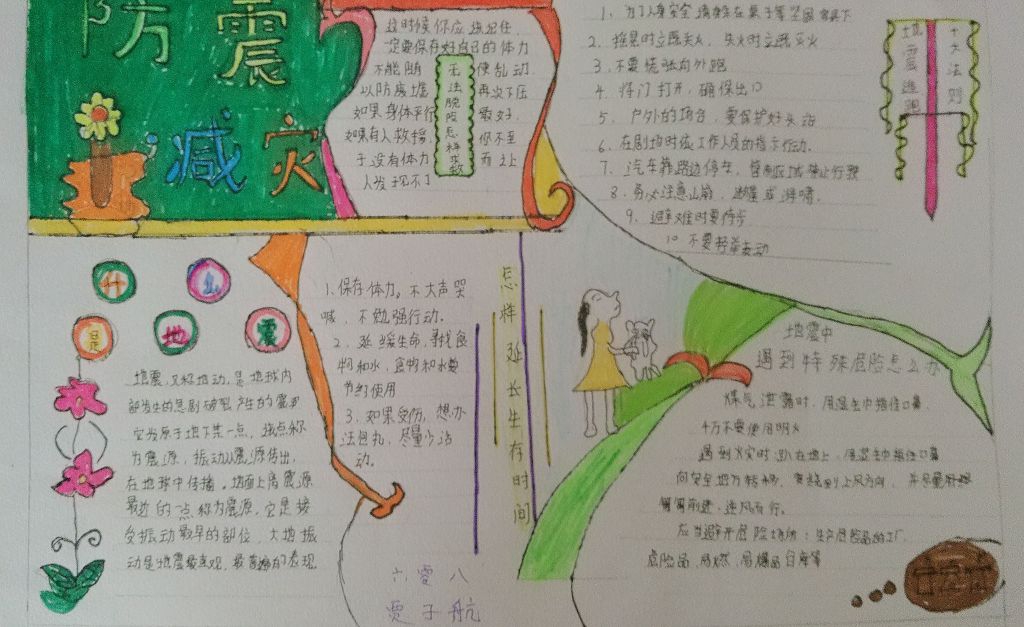 防震
减灾
这时候你应该记住
一定要保存好自己的体力
不能随便乱动
以防废墟再次下压
如果身体平行最好
如果有人救援，你不至
于没有体力而让
人发现不了
无法脱险怎样求救
1、为了人身安全请躲在桌子等坚固家具下
2、摇晃时立即关火，失火时立即灭火
3、不要慌张向外跑
4、将门打开，确保出口
5、户外的场合，要保护好头部
6、在剧场时依工作人员的指示行动。
7、汽车靠路边停车，管制区域禁止行驶
8、务必注意山崩、
9、避难时要停步
10、不要轻举妄动
地震逃跑
十大法则
什么
是地震
地震，又称地动，是地球内
部发生的急剧破裂产生的震波
它发源于地下某一点，该点称
为震源，振动从震源传出，
在地球中传播。地面上离震源
最近的一点称为震源，它是接
受振动最早的部位，大地振
动是地震最直观，最普遍的表现
1、保存体力。不大声哭
喊，不勉强行动。
2、延缓生命，寻找食
物和水，食物和水要
节约使用
3、如果受伤，想办
法包扎，尽量少活
动。
怎样延长生存时间
地震中
遇到特殊危险怎么办
煤气泄露时，用湿毛巾捂住口鼻，
千万不要使用明火
遇到火灾时，趴在地上，用湿毛巾捂住口鼻
向安全地方转移，要绕到上风方向，并尽量用湿
匍匐前进，逆风而行。
应当避开危险场所：生产危险品的工厂
危险品，易燃、易爆品仓库等
六零八
贾子航